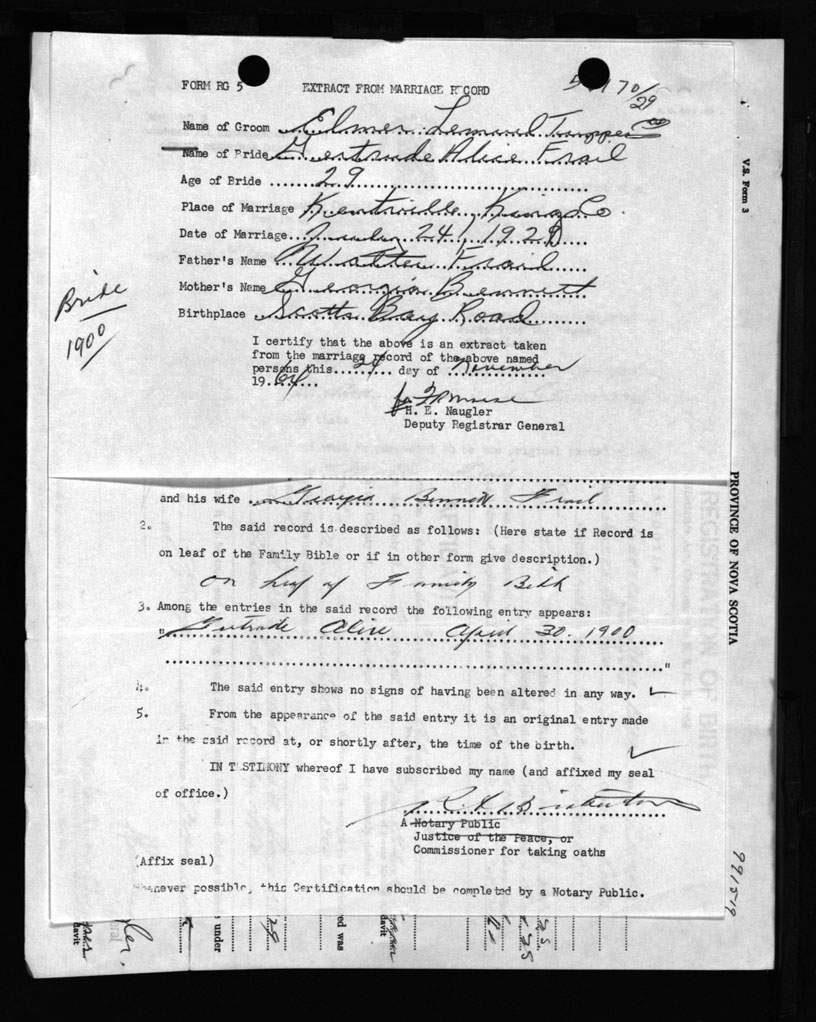 FORM RG 5 EXTRACT FROM MARRIAGE RECORD
70/29
Name of Groom Elmer
Name of Bride Gertrude Alice Frail
Age of Bride 29
Place of Marriage Kentville Kings Co.
Date of Marriage July 24 1929
Father's Name Walter Frail
Mother's Name Georgia Bennett
Birthplace Scotts Bay Road
Bride
1900
I certify that the above is an extract taken
from the marriage record of the above named
persons this 24 day of November
1964
for
H. E. Naugler
Deputy Registrar General
and his wife Georgia Bennett Frail
2. The said record is described as follows: (Here state if Record is
on leaf of the Family Bible or if in other form give description.)
on leaf of Family Bible
3. Among the entries in the said record the following entry appears:
"Gertrude Alice April 30. 1900
"
4. The said entry shows no signs of having been altered in any way.
5. From the appearance of the said entry it is an original entry made
in the said record at, or shortly after, the time of the birth.
IN TESTIMONY whereof I have subscribed my name (and affixed my seal
of office.)
A Notary Public
Justice of the Peace, or
Commissioner for taking oaths
(Affix seal)
Whenever possible, this Certification should be completed by a Notary Public.
V.S. Form 3
PROVINCE OF NOVA SCOTIA
REGISTRATION OF BIRTH
991519
davit
under
red was
davit